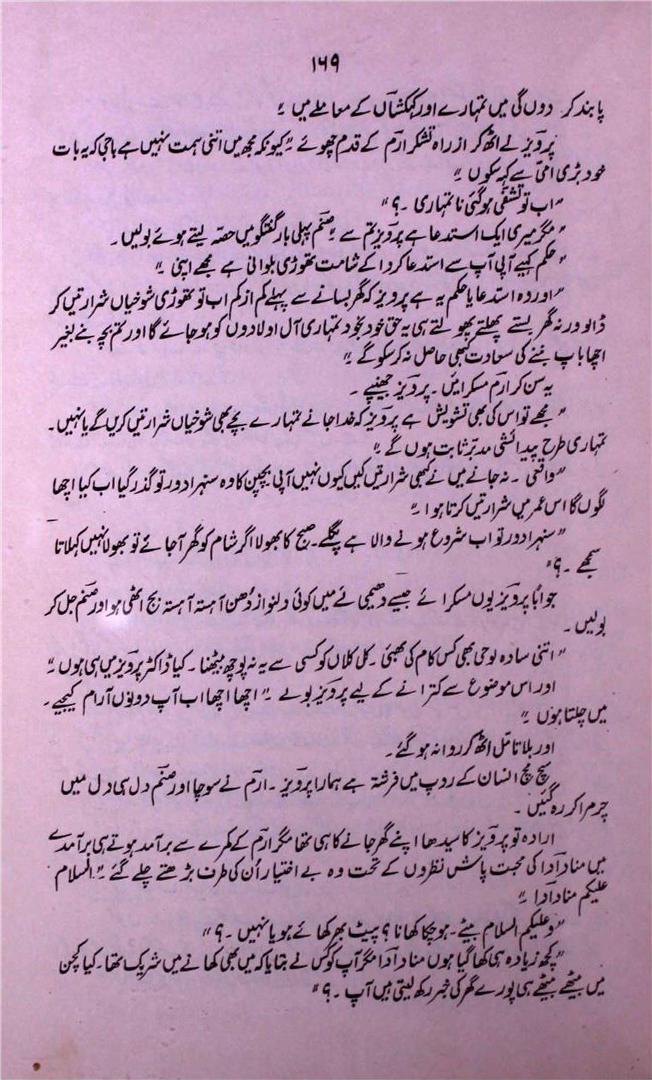 ۱۶۹
پابند کر دوں گی میں تمہارے اور کہکشاں کے معاملے میں ۔"
پرویز نے اٹھ کر ازراہ تشکر ارم کے قدم چھوئے ۔" کیونکہ مجھ میں اتنی ہمت نہیں ہے باجی کہ یہ بات
خود بڑی امی سے کہہ سکوں ۔"
"اب تو تشفی ہو گئی نا تمہاری ۔؟"
"مگر میری ایک استدعا ہے پرویز تم سے ۔" صنم پہلی بار گفتگو میں حصہ لیتے ہوئے بولیں۔
"حکم کہیے آپی آپ سے استدعا کروا کے شامت تھوڑی بلوانی ہے مجھے اپنی ۔"
"اور وہ استدعا یا حکم یہ ہے پرویز کہ گھر بسانے سے پہلے کم از کم اب تو تھوڑی شوخیاں شرارتیں کر
ڈالو ورنہ گھر بستے پھلتے پھولتے ہی یہ حق خود بخود تمہاری آل اولادوں کو ہو جائے گا اور تم بچہ بنے بغیر
اچھا باپ بننے کی سعادت کبھی حاصل نہ کر سکو گے ۔"
یہ سن کر ارم مسکرائیں ۔ پرویز جھینپے ۔
"مجھے تو اس کی بھی تشویش ہے پرویز کہ خدا جانے تمہارے بچے بھی شوخیاں شرارتیں کریں گے یا نہیں۔
تمہاری طرح پیدائشی مدبر ثابت ہوں گے ۔"
"واقعی ۔ نہ جانے میں نے کبھی شرارتیں کیں کیوں نہیں آپی بچپن کا وہ سنہرا دور تو گذر گیا اب کیا اچھا
لگوں گا اس عمر میں شرارتیں کرتا ہوا ۔"
"سنہرا دور تو اب شروع ہونے والا ہے پگلے۔ صبح کا بھولا اگر شام کو گھر آ جائے تو بھولا نہیں کہلاتا
سمجھے ۔؟"
جواباً پرویز یوں مسکرائے جیسے دھیمی لے میں کوئی دلنواز دُھن آہستہ آہستہ بج اٹھی ہو اور صنم جل کر
بولیں ۔
"اتنی سادہ لوحی بھی کس کام کی بھئی ۔ کل کلاں کو کسی سے یہ نہ پوچھ بیٹھنا ۔ کیا ڈاکٹر پرویز میں ہی ہوں ۔"
اور اس موضوع سے کترانے کے لیے پرویز بولے ۔" اچھا اچھا اب آپ دونوں آرام کیجیے۔
میں چلتا ہوں ۔"
اور بلا تامل اٹھ کر روانہ ہو گئے ۔
سچ مچ انسان کے روپ میں فرشتہ ہے ہمارا پرویز ۔ ارم نے سوچا اور صنم دل ہی دل میں
چرمرا کر رہ گئیں ۔
ارادہ تو پرویز کا سیدھا اپنے گھر جانے کا ہی تھا مگر ارم کے کمرے سے برآمد ہوتے ہی برآمدے
میں منا دادا کی محبت پاش نظروں کے تحت وہ بے اختیار اُن کی طرف بڑھتے چلے گئے ۔" السلام
علیکم منا دادا ۔"
"وعلیکم السلام بیٹے۔ ہو چکا کھانا؟ پیٹ بھر کھائے ہو یا نہیں ۔؟"
"کچھ زیادہ ہی کھا گیا ہوں منا دادا مگر آپ کو کس نے بتایا کہ میں بھی کھانے میں شریک تھا۔ کیا کچن
میں بیٹھے بیٹھے ہی پورے گھر کی خبر رکھ لیتی ہیں آپ ۔؟"